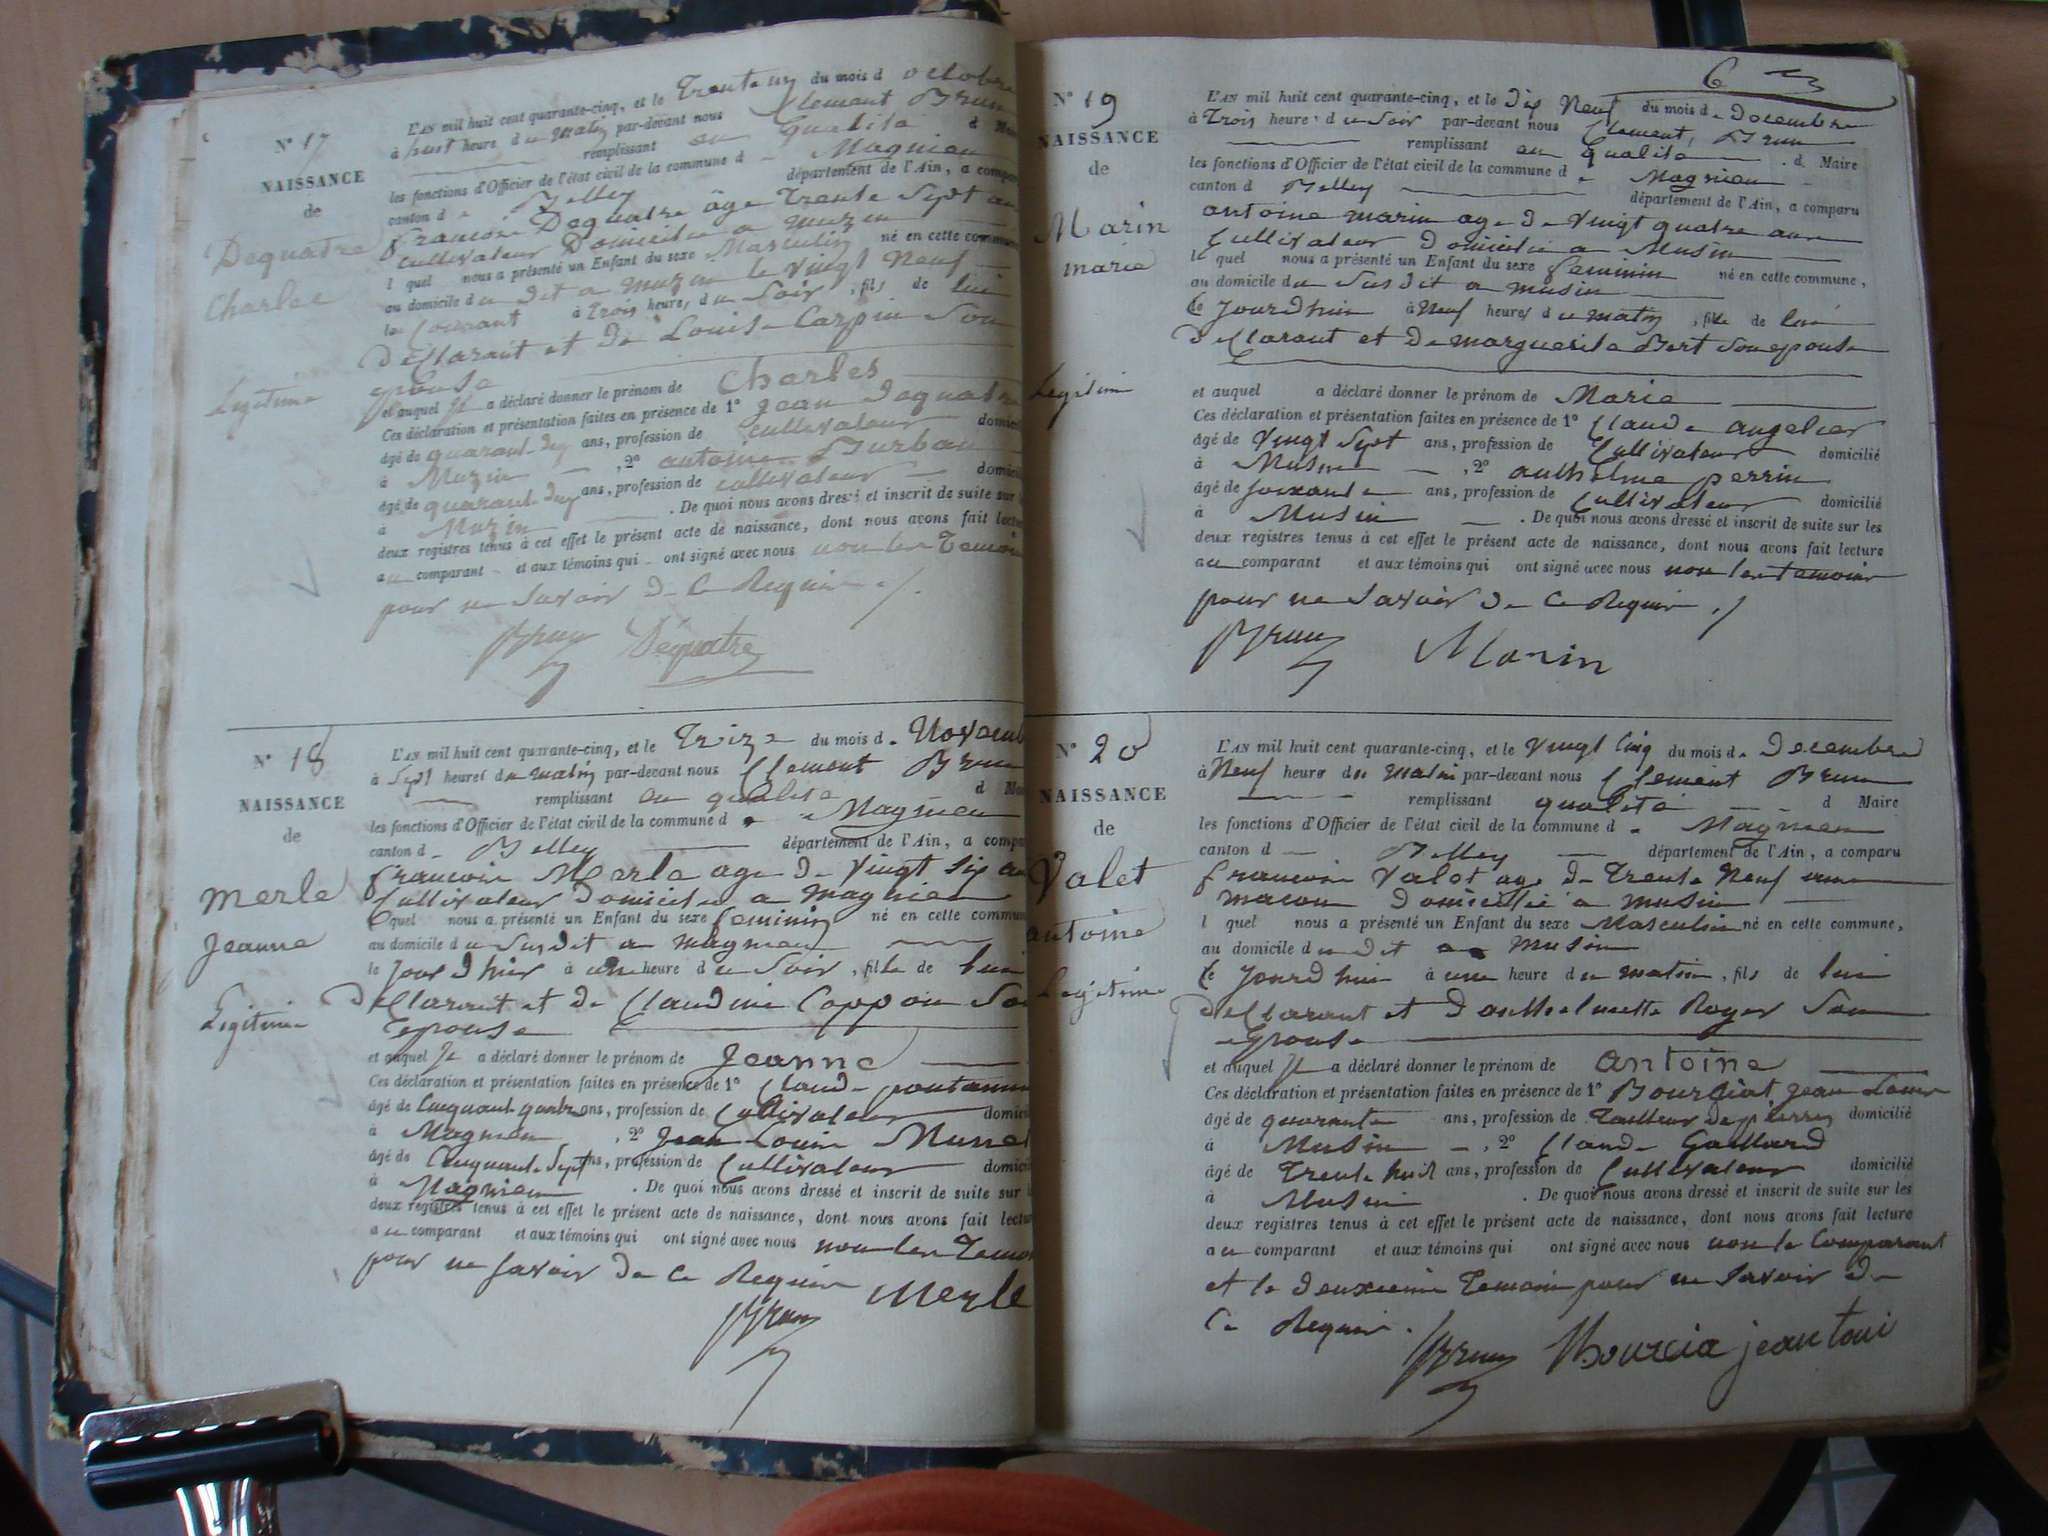 N° 17
NAISSANCE
de
Dequatre
Charles
Legitime
L'AN mil huit cent quarante-cinq, et le Trente un du mois d octobre
à huit heure du matin par-devant nous Clement Brun
remplissant en qualité d
les fonctions d'Officier de l'état civil de la commune d Magnieu
canton de Belley département de l'Ain, a compar
francois Dequatre age Trente Sept an
Cultivateur Domicilie a muzin
l quel nous a présenté un Enfant du sexe Masculin né en cette commune
au domicile du dit a muzin le vingt Neuf
le Courant à Trois heures du Soir, fils de lui
declarant et de Louise Carpin Son
epouse
et auquel Il a déclaré donner le prénom de Charles
Ces déclaration et présentation faites en présence de 1° jean Dequatre
âgé de quarant Deux ans, profession de Cultivateur domicil
à Muzin, 2° antoine Burban
âgé de quarant Deux ans, profession de cultivateur domicil
à Muzin. De quoi nous avons dressé et inscrit de suite sur
deux registres tenus à cet effet le présent acte de naissance, dont nous avons fait lectu
au comparant et aux témoins qui ont signé avec nous non les Temoin
pour ne Savoir de Ce Requir ./.
Brun Déquatre
N° 18
NAISSANCE
de
Merle
Jeanne
Legitime
L'AN mil huit cent quarante-cinq, et le Treize du mois de Novemb
à Sept heures du matin par-devant nous Clement Brun
remplissant en qualité d
les fonctions d'Officier de l'état civil de la commune de Magnieu
canton d Belley département de l'Ain, a compa
francois Merle age de vingt six an
Cultivateur Domicilie a magnieu
l quel nous a présenté un Enfant du sexe feminin né en cette commun
au domicile du Susdit a magnieu
le jour d hier à une heure du Soir, fille de lui
declarant et de Claudine Coppon Son
Epouse
et auquel Il a déclaré donner le prénom de Jeanne
Ces déclaration et présentation faites en présence de 1° Claude
âgé de Cinquant quatre ans, profession de Cultivateur domici
à Magnieu, 2° Jean Louis
âgé de Cinquante Sept ans, profession de Cultivateur domici
à Magnieu. De quoi nous avons dressé et inscrit de suite sur
deux registres tenus à cet effet le présent acte de naissance, dont nous avons fait lectu
au comparant et aux témoins qui ont signé avec nous non les Temo
pour ne Savoir de Ce Requir Merle
Brun
6
N° 19
NAISSANCE
de
Marin
marie
Legitim
L'AN mil huit cent quarante-cinq, et le Dix Neuf du mois de Decembre
à Trois heure du Soir par-devant nous Clement Brun
remplissant en qualité d Maire
les fonctions d'Officier de l'état civil de la commune de Magnieu
canton d Belley département de l'Ain, a comparu
antoine marin age de vingt quatre ans
Cultivateur Domicilie a Musin
l quel nous a présenté un Enfant du sexe feminin né en cette commune,
au domicile du Susdit a musin
le Jourdhui à Neuf heures du matin, fille de lui
declarant et de marguerite Bert Son epouse
et auquel a déclaré donner le prénom de Marie
Ces déclaration et présentation faites en présence de 1° Claude angelier
âgé de Vingt Sept ans, profession de Cultivateur domicilié
à Musin, 2° anthelme perrin
âgé de soixante ans, profession de Cultivateur domicilié
à Musin. De quoi nous avons dressé et inscrit de suite sur les
deux registres tenus à cet effet le présent acte de naissance, dont nous avons fait lecture
au comparant et aux témoins qui ont signé avec nous non les temoins
pour ne Savoir de Ce Requir ./
Brun Marin
N° 20
NAISSANCE
de
Valet
antoine
Legitime
L'AN mil huit cent quarante-cinq, et le vingt Cinq du mois de Decembre
à Neuf heure du matin par-devant nous Clement Brun
remplissant qualité d Maire
les fonctions d'Officier de l'état civil de la commune de Magnieu
canton d Belley département de l'Ain, a comparu
francois Valet age de Trente Neuf ans
macon Domicilié a musin
l quel nous a présenté un Enfant du sexe Masculin né en cette commune,
au domicile du dit a Musin
le Jourd hui à une heure du matin, fils de lui
declarant et Danthelmette Roger Son
Epouse
et auquel Il a déclaré donner le prénom de antoine
Ces déclaration et présentation faites en présence de 1° Bourciat Jean Louis
âgé de quarante ans, profession de Tailleur de pierres domicilié
à Musin, 2° Claude Gaillard
âgé de Trente huit ans, profession de Cultivateur domicilié
à Musin. De quoi nous avons dressé et inscrit de suite sur les
deux registres tenus à cet effet le présent acte de naissance, dont nous avons fait lecture
au comparant et aux témoins qui ont signé avec nous non le Comparant
et le deuxieme Temoin pour ne Savoir de
Ce Requir.
Brun Bourcia jean loui